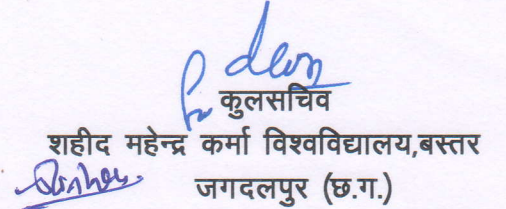 कुलसचिव
शहीद महेन्द्र कर्मा विश्वविद्यालय,बस्तर
जगदलपुर (छ.ग.)